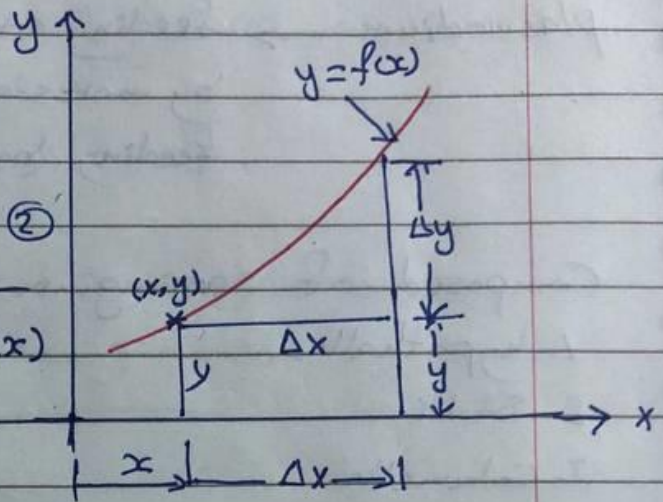 y
y = f(x)
②
Δy
(x, y)
x)
Δx
y
y
x
x
Δx